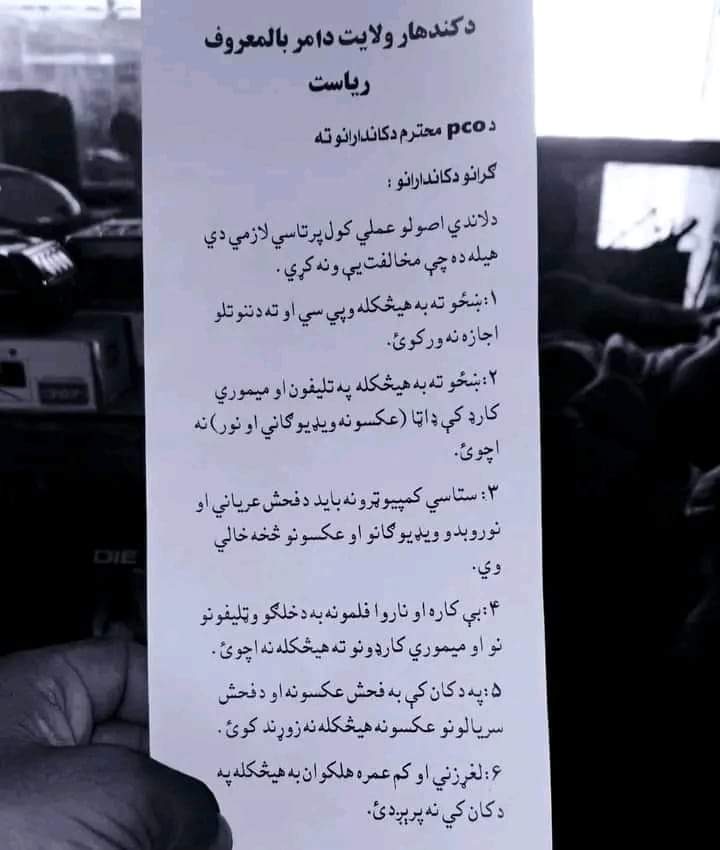 دکندهار ولایت دامر بالمعروف
ریاست
د pco محترم دکاندارانو ته
ګرانو دکاندارانو :
دلاندي اصولو عملي کول پرتاسي لازمي دي
هیله ده چي مخالفت یې ونه کړي .
۱:ښځو ته به هیڅکله وپي سي او ته دننوتلو
اجازه نه ورکوئ.
۲:ښځو ته به هیڅکله په تلیفون او میموري
کارډ کې ډاټا (عکسونه ویډیوګاني او نور) نه
اچوئ.
۳: ستاسي کمپیوټرونه باید دفحش عریاني او
نورو بدو ویډیوګانو او عکسونو څخه خالي
وي.
۴:بې کاره او ناروا فلمونه به دخلګو وټلیفونو
نو او میموري کارډونو ته هیڅکله نه اچوئ .
۵:په دکان کې به فحش عکسونه او دفحش
سریالونو عکسونه هیڅکله نه زوړند کوئ .
۶:لغړزني او کم عمره هلکوان به هیڅکله په
دکان کي نه پرېږدئ.
DIE